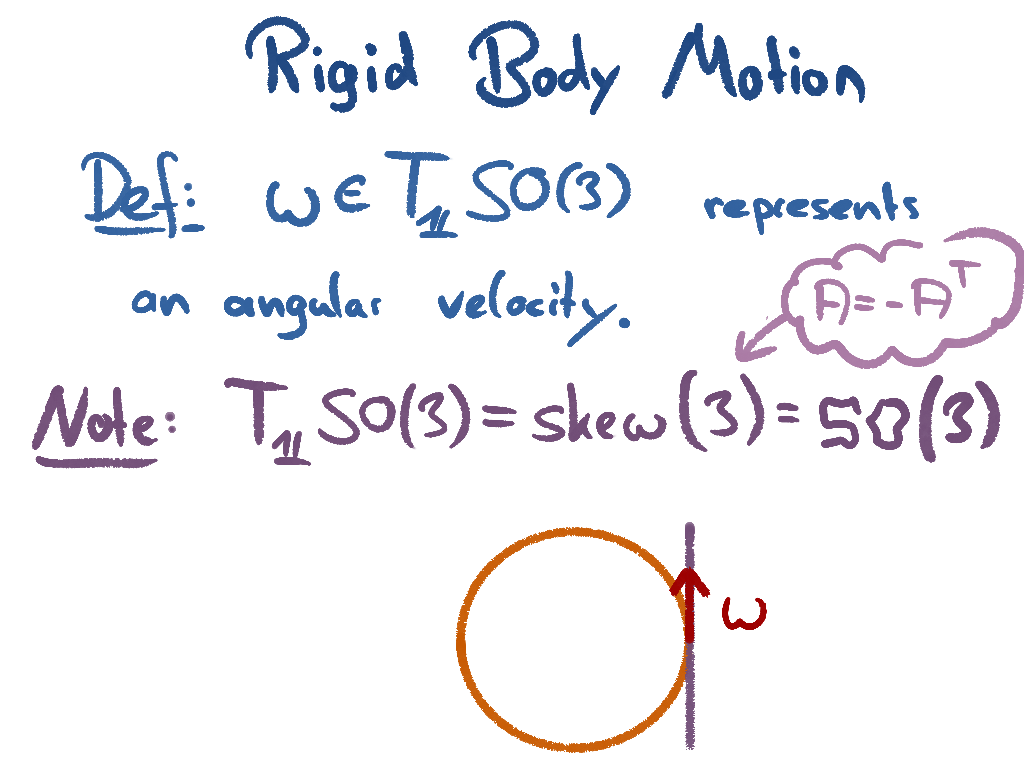 Rigid Body Motion
Def: ω ∈ T_𝟙 SO(3) represents
an angular velocity.
A = -A^T
Note: T_𝟙 SO(3) = skew(3) = 𝔰𝔬(3)
ω